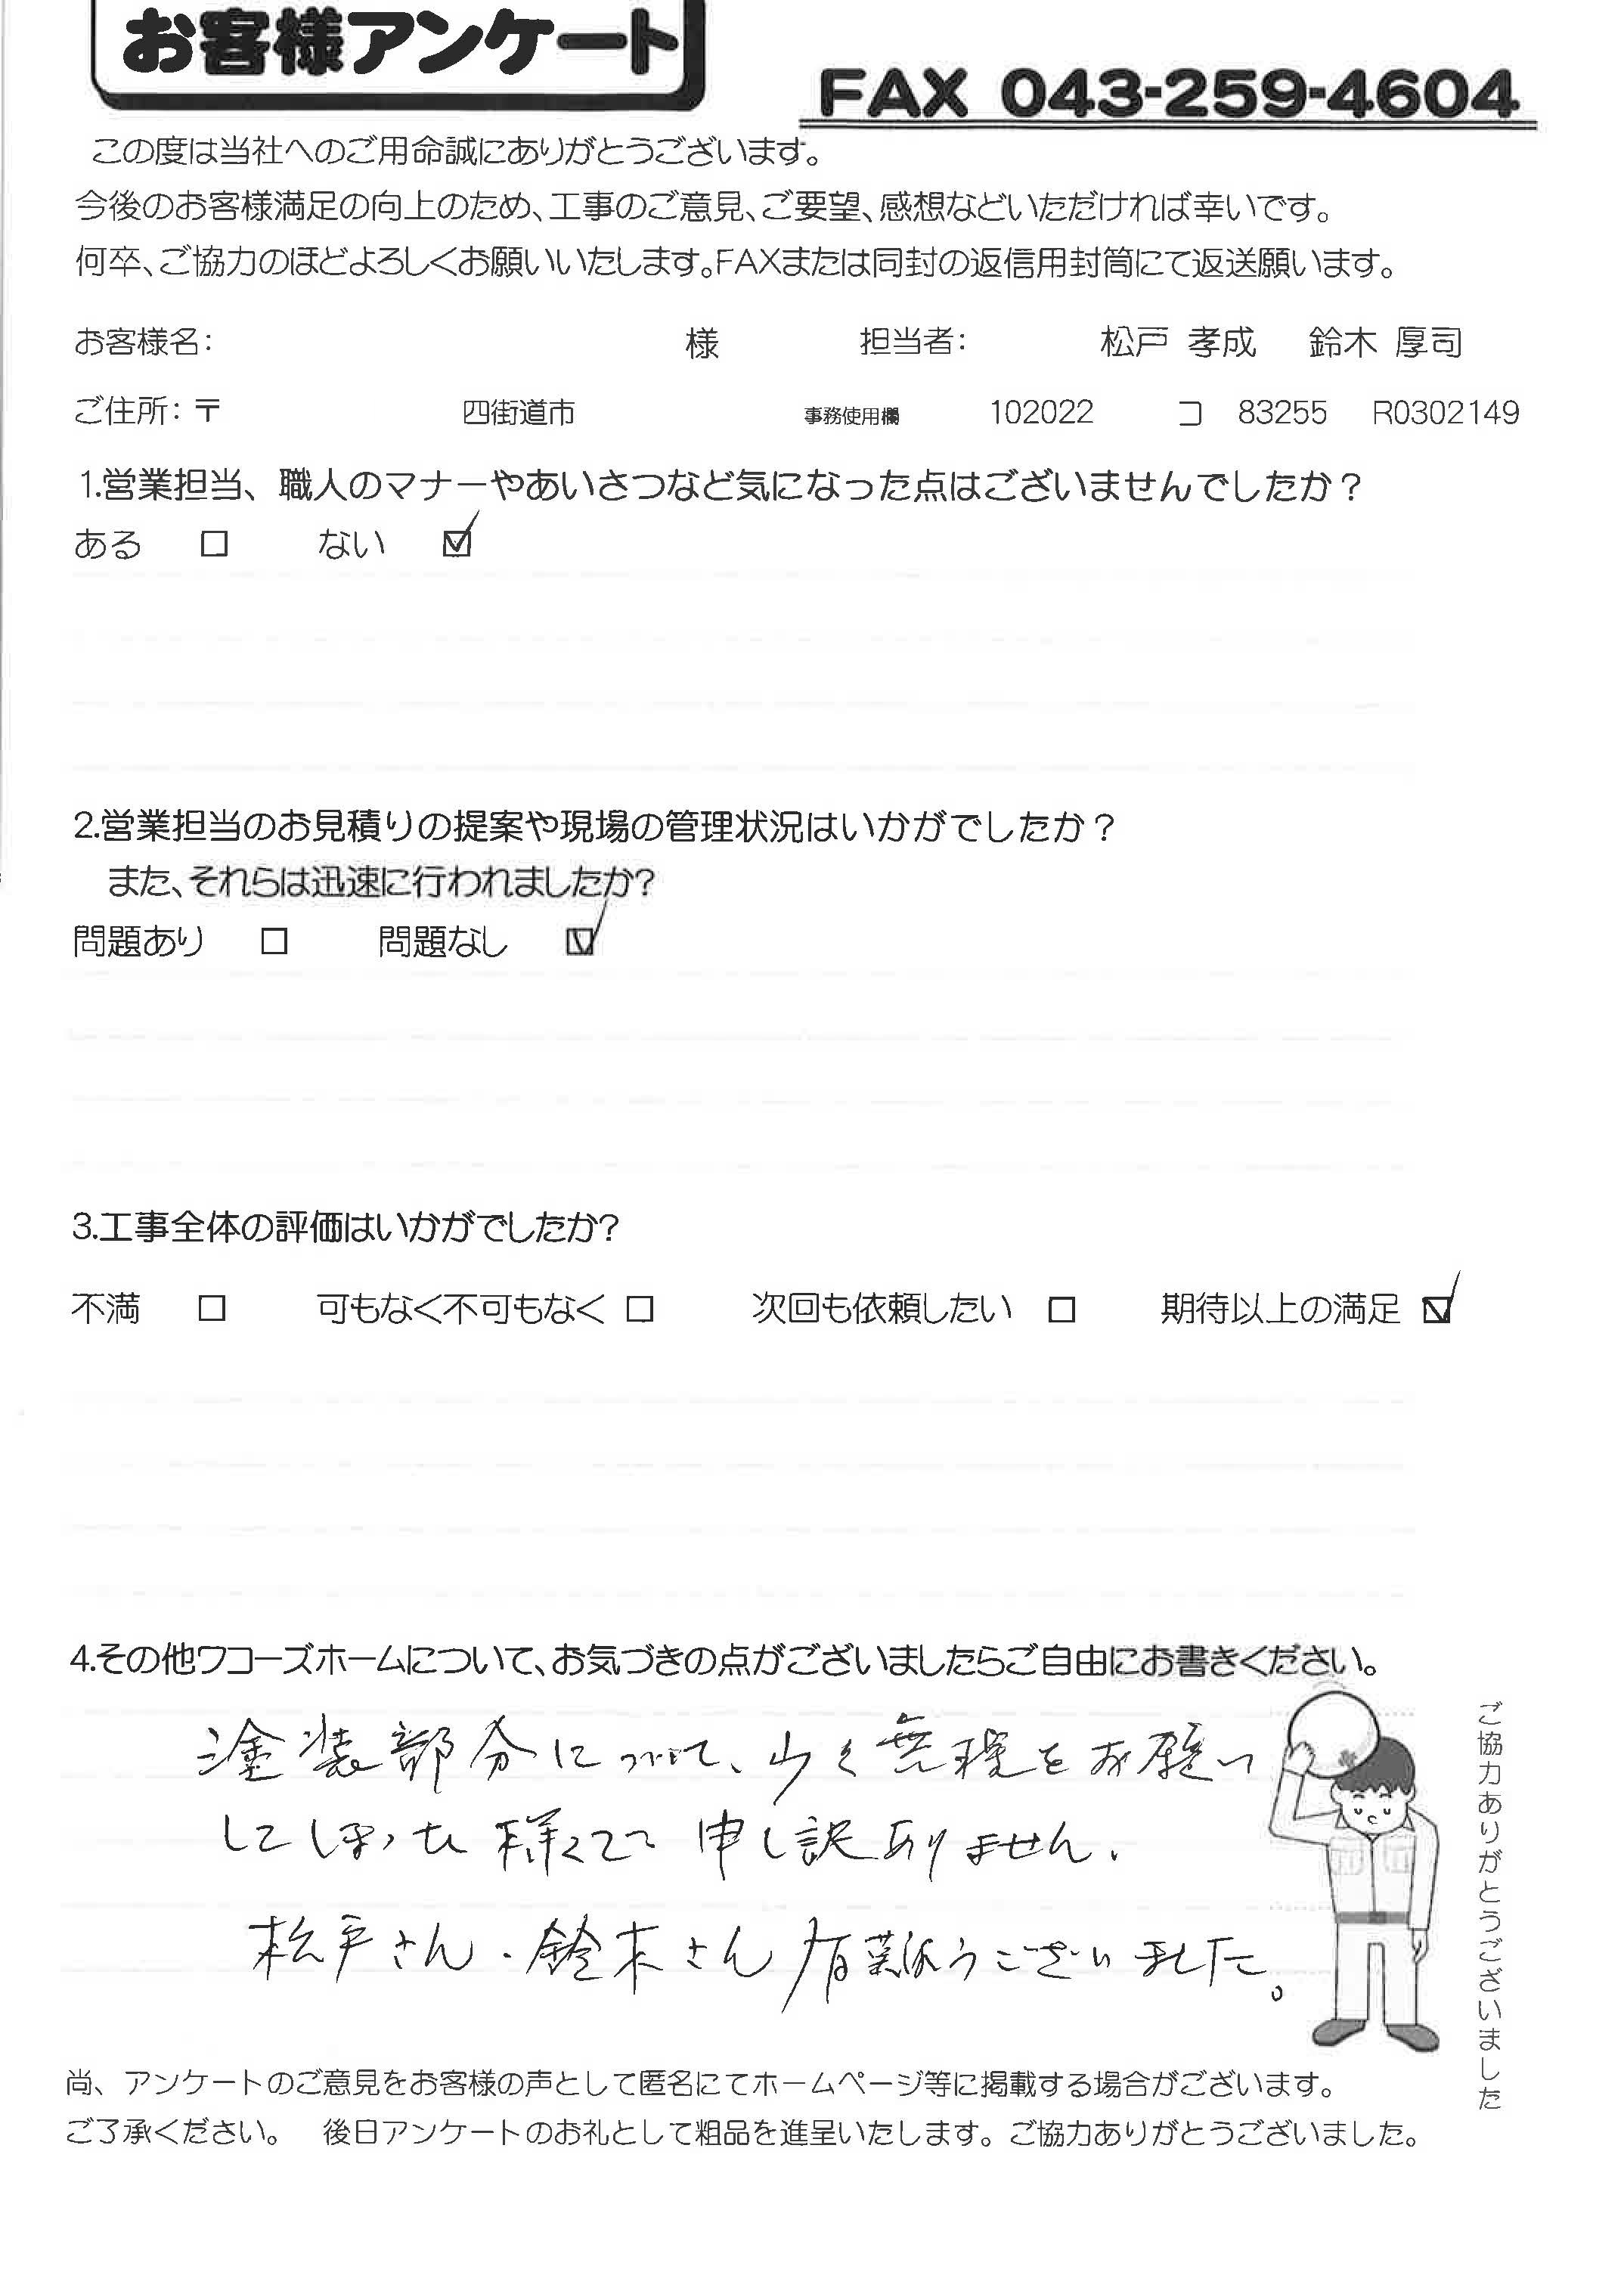 お客様アンケート
FAX 043-259-4604
この度は当社へのご用命誠にありがとうございます。
今後のお客様満足の向上のため、工事のご意見、ご要望、感想などいただければ幸いです。
何卒、ご協力のほどよろしくお願いいたします。FAXまたは同封の返信用封筒にて返送願います。
お客様名: 様 担当者: 松戸 孝成 鈴木 厚司
ご住所:〒 四街道市 事務使用欄 102022 コ 83255 R0302149
1.営業担当、職人のマナーやあいさつなど気になった点はございませんでしたか？
ある □ ない ☑
2.営業担当のお見積りの提案や現場の管理状況はいかがでしたか？
また、それらは迅速に行われましたか?
問題あり □ 問題なし ☑
3.工事全体の評価はいかがでしたか?
不満 □ 可もなく不可もなく □ 次回も依頼したい □ 期待以上の満足 ☑
4.その他ワコーズホームについて、お気づきの点がございましたらご自由にお書きください。
塗装部分について、少々無理をお願い
してしまった様で 申し訳ありません.
松戸さん・鈴木さん 有難うございました。
ご協力ありがとうございました
尚、アンケートのご意見をお客様の声として匿名にてホームページ等に掲載する場合がございます。
ご了承ください。 後日アンケートのお礼として粗品を進呈いたします。ご協力ありがとうございました。